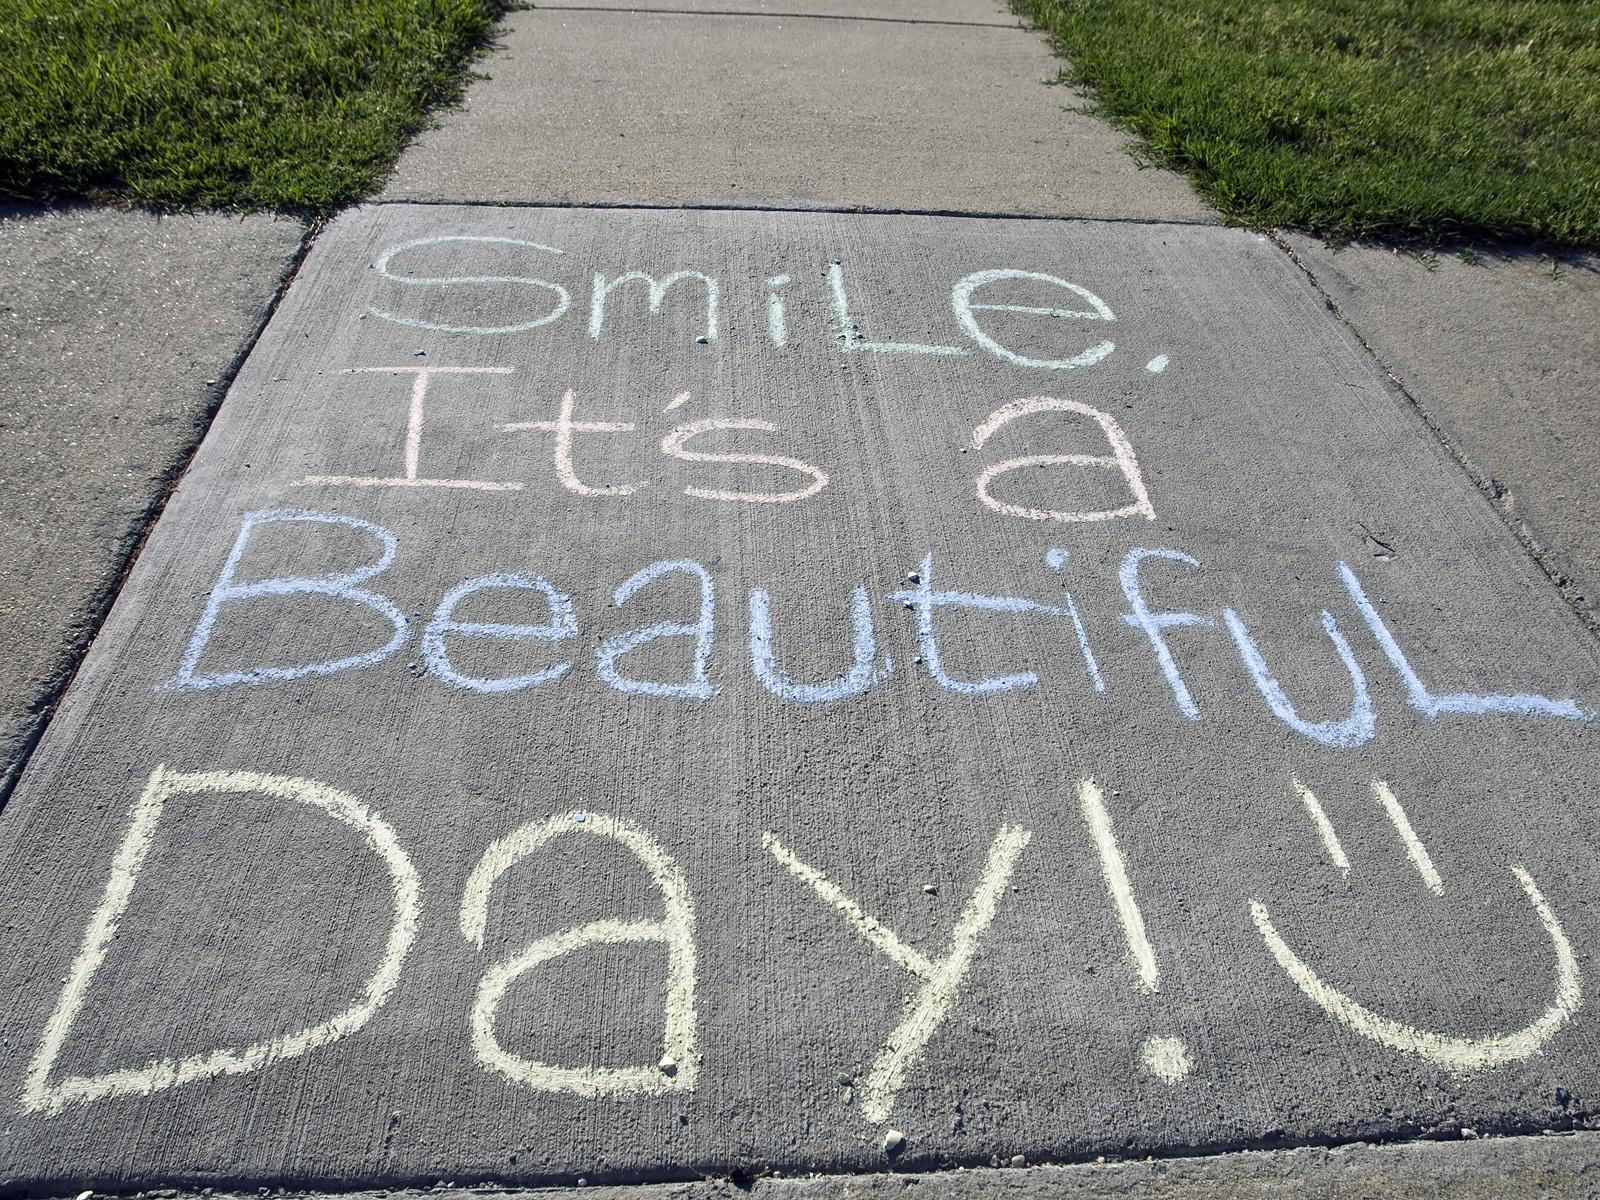 Smile,
It's a
Beautiful
Day! =)